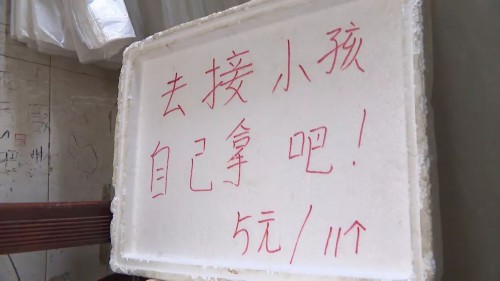 去接小孩
自己拿吧！
5元/11个